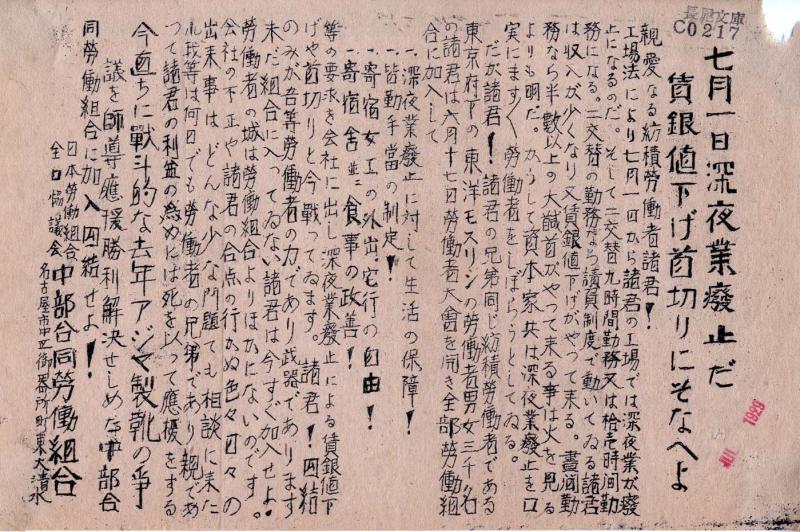 長尾文庫
C0217
七月一日深夜業廢止だ
賃銀値下げ首切りにそなへよ
親愛なる紡積勞働者諸君!
工場法により七月一日から諸君の工場では深夜業が廢
止になるのだ。そして二交替九時間勤務又は拾壱時間勤
務になる。二交替の勤務なら請負制度で動いてゐる諸君
は収入が少くなり又賃銀値下げがやって来る。晝間勤
務なら半數以上の大馘首がやって来る事は火を見る
よりも明だ。かうして資本家共は深夜業廢止を口
実にますます勞働者をしぼらうとしてゐる。
だが諸君!諸君の兄弟同じ紡積勞働者である
東京府下の東洋モスリンの勞働者男女三千名
の諸君は六月十七日勞働者大會を開き全部勞働組
合に加入して
一、深夜業廢止に対して生活の保障!
一、皆勤手當の制定!
一、寄宿女工の外出、宅行の自由!
一、寄宿舍並ニ食事の改善!
等の要求を会社に出し深夜業廢止による賃銀値下
げや首切りと今戦ってゐます。諸君!団結
のみが吾等勞働者の力であり武器であります
未だ組合に入ってゐない諸君は今すぐ加入せよ!
勞働者の城は勞働組合よりほかにないのです。
会社の不正や諸君の合点の行かぬ色々日々の
出来事はどんな少な問題でも相談に来た
れ我等は何日でも勞働者の兄弟であり親であ
って諸君の利益の為めには死を以って應援をする
今直ちに戰斗的な去年アジマ製靴の爭
議を師導應援勝利解決せしめた中部合
同勞働組合に加入団結せよ!
日本勞働組合
全国協議会
中部合同勞働組合
名古屋市中区御器所町東大清水
JUL
1929